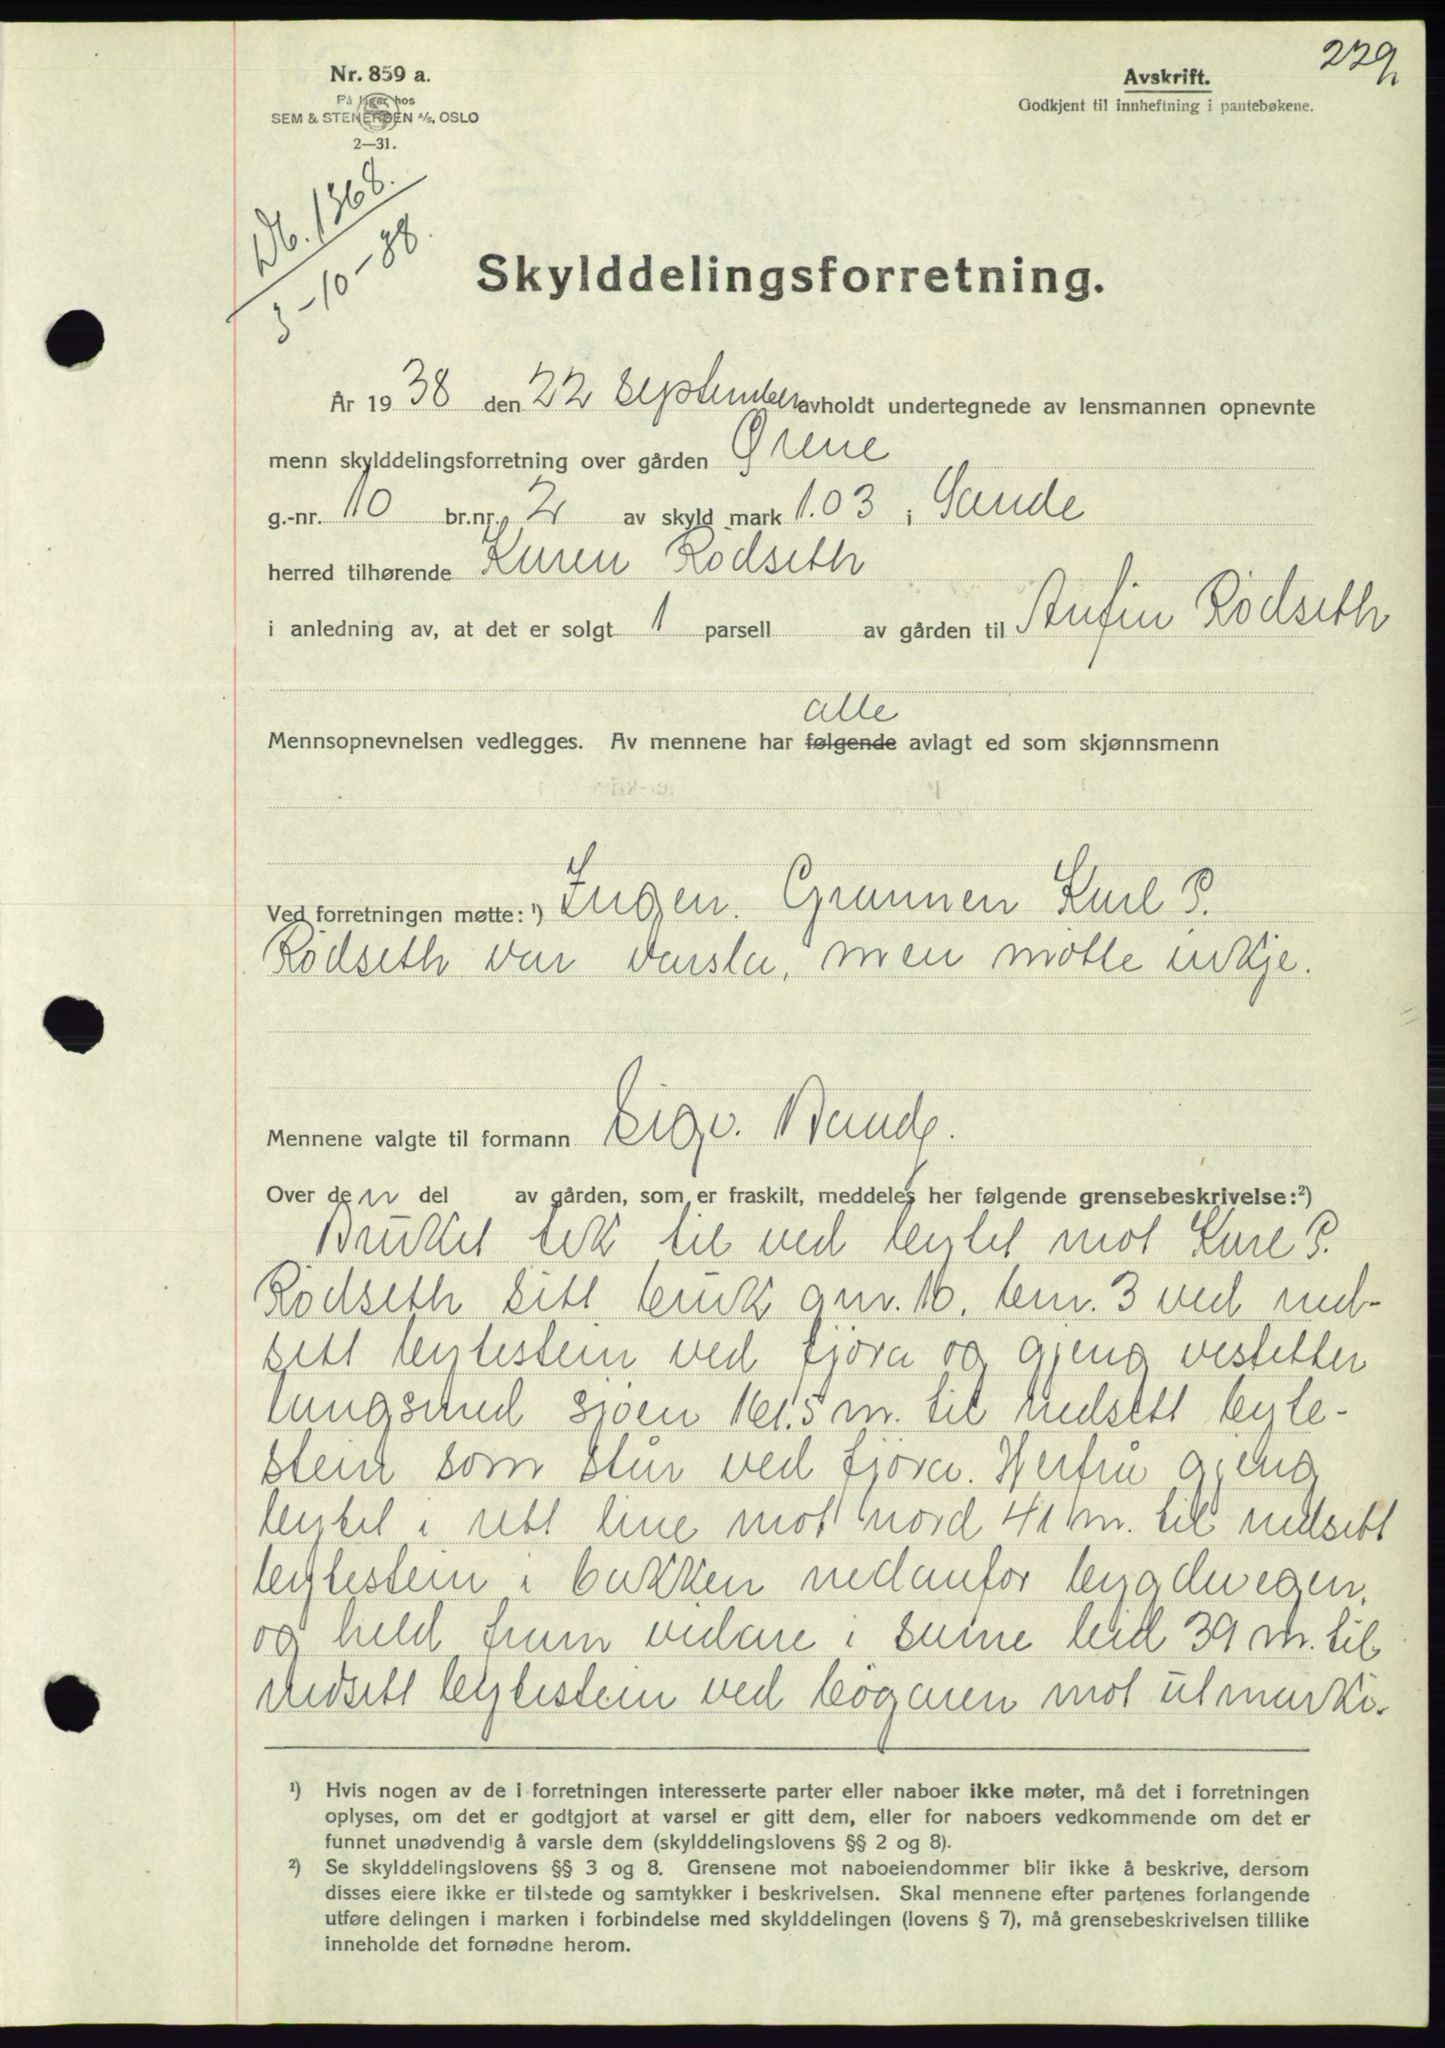 229
Nr. 859 a.
På lager hos
SEM & STENERSEN A/S, OSLO
2—31.
Avskrift.
Godkjent til innheftning i pantebøkene.
Db. 1368.
3-10-38.
Skylddelingsforretning.
År 1938 den 22 September avholdt undertegnede av lensmannen opnevnte
menn skylddelingsforretning over gården Ørene
g.-nr. 10 br.nr. 2 av skyld mark 1.03 i Sande
herred tilhørende Karen Rødseth
i anledning av, at det er solgt 1 parsell av gården til Anfin Rødseth
alle
Mennsopnevnelsen vedlegges. Av mennene har følgende avlagt ed som skjønnsmenn
Ved forretningen møtte: 1) Ingen. Grannen Karl P.
Rødseth var varsla, men møtte inkje.
Mennene valgte til formann Sigv. Bande.
Over den del av gården, som er fraskilt, meddeles her følgende grensebeskrivelse: 2)
Bruket tek til ved bytet mot Karl P.
Rødseth sitt bruk gnr. 10. bnr. 3 ved ned-
sett bytestein ved fjøra og gjeng vestetter
langsmed sjøen 161.5 m. til nedsett byte-
stein som står ved fjøra. Herfrå gjeng
bytet i rett line mot nord 41 m. til nedsett
bytestein i bakken nedanfor bygdevegen,
og held fram vidare i same leid 39 m. til
nedsett bytestein ved bøgaren mot utmarki.
1) Hvis nogen av de i forretningen interesserte parter eller naboer ikke møter, må det i forretningen
oplyses, om det er godtgjort at varsel er gitt dem, eller for naboers vedkommende om det er
funnet unødvendig å varsle dem (skylddelingslovens §§ 2 og 8).
2) Se skylddelingslovens §§ 3 og 8. Grensene mot naboeiendommer blir ikke å beskrive, dersom
disses eiere ikke er tilstede og samtykker i beskrivelsen. Skal mennene efter partenes forlangende
utføre delingen i marken i forbindelse med skylddelingen (lovens § 7), må grensebeskrivelsen tillike
inneholde det fornødne herom.